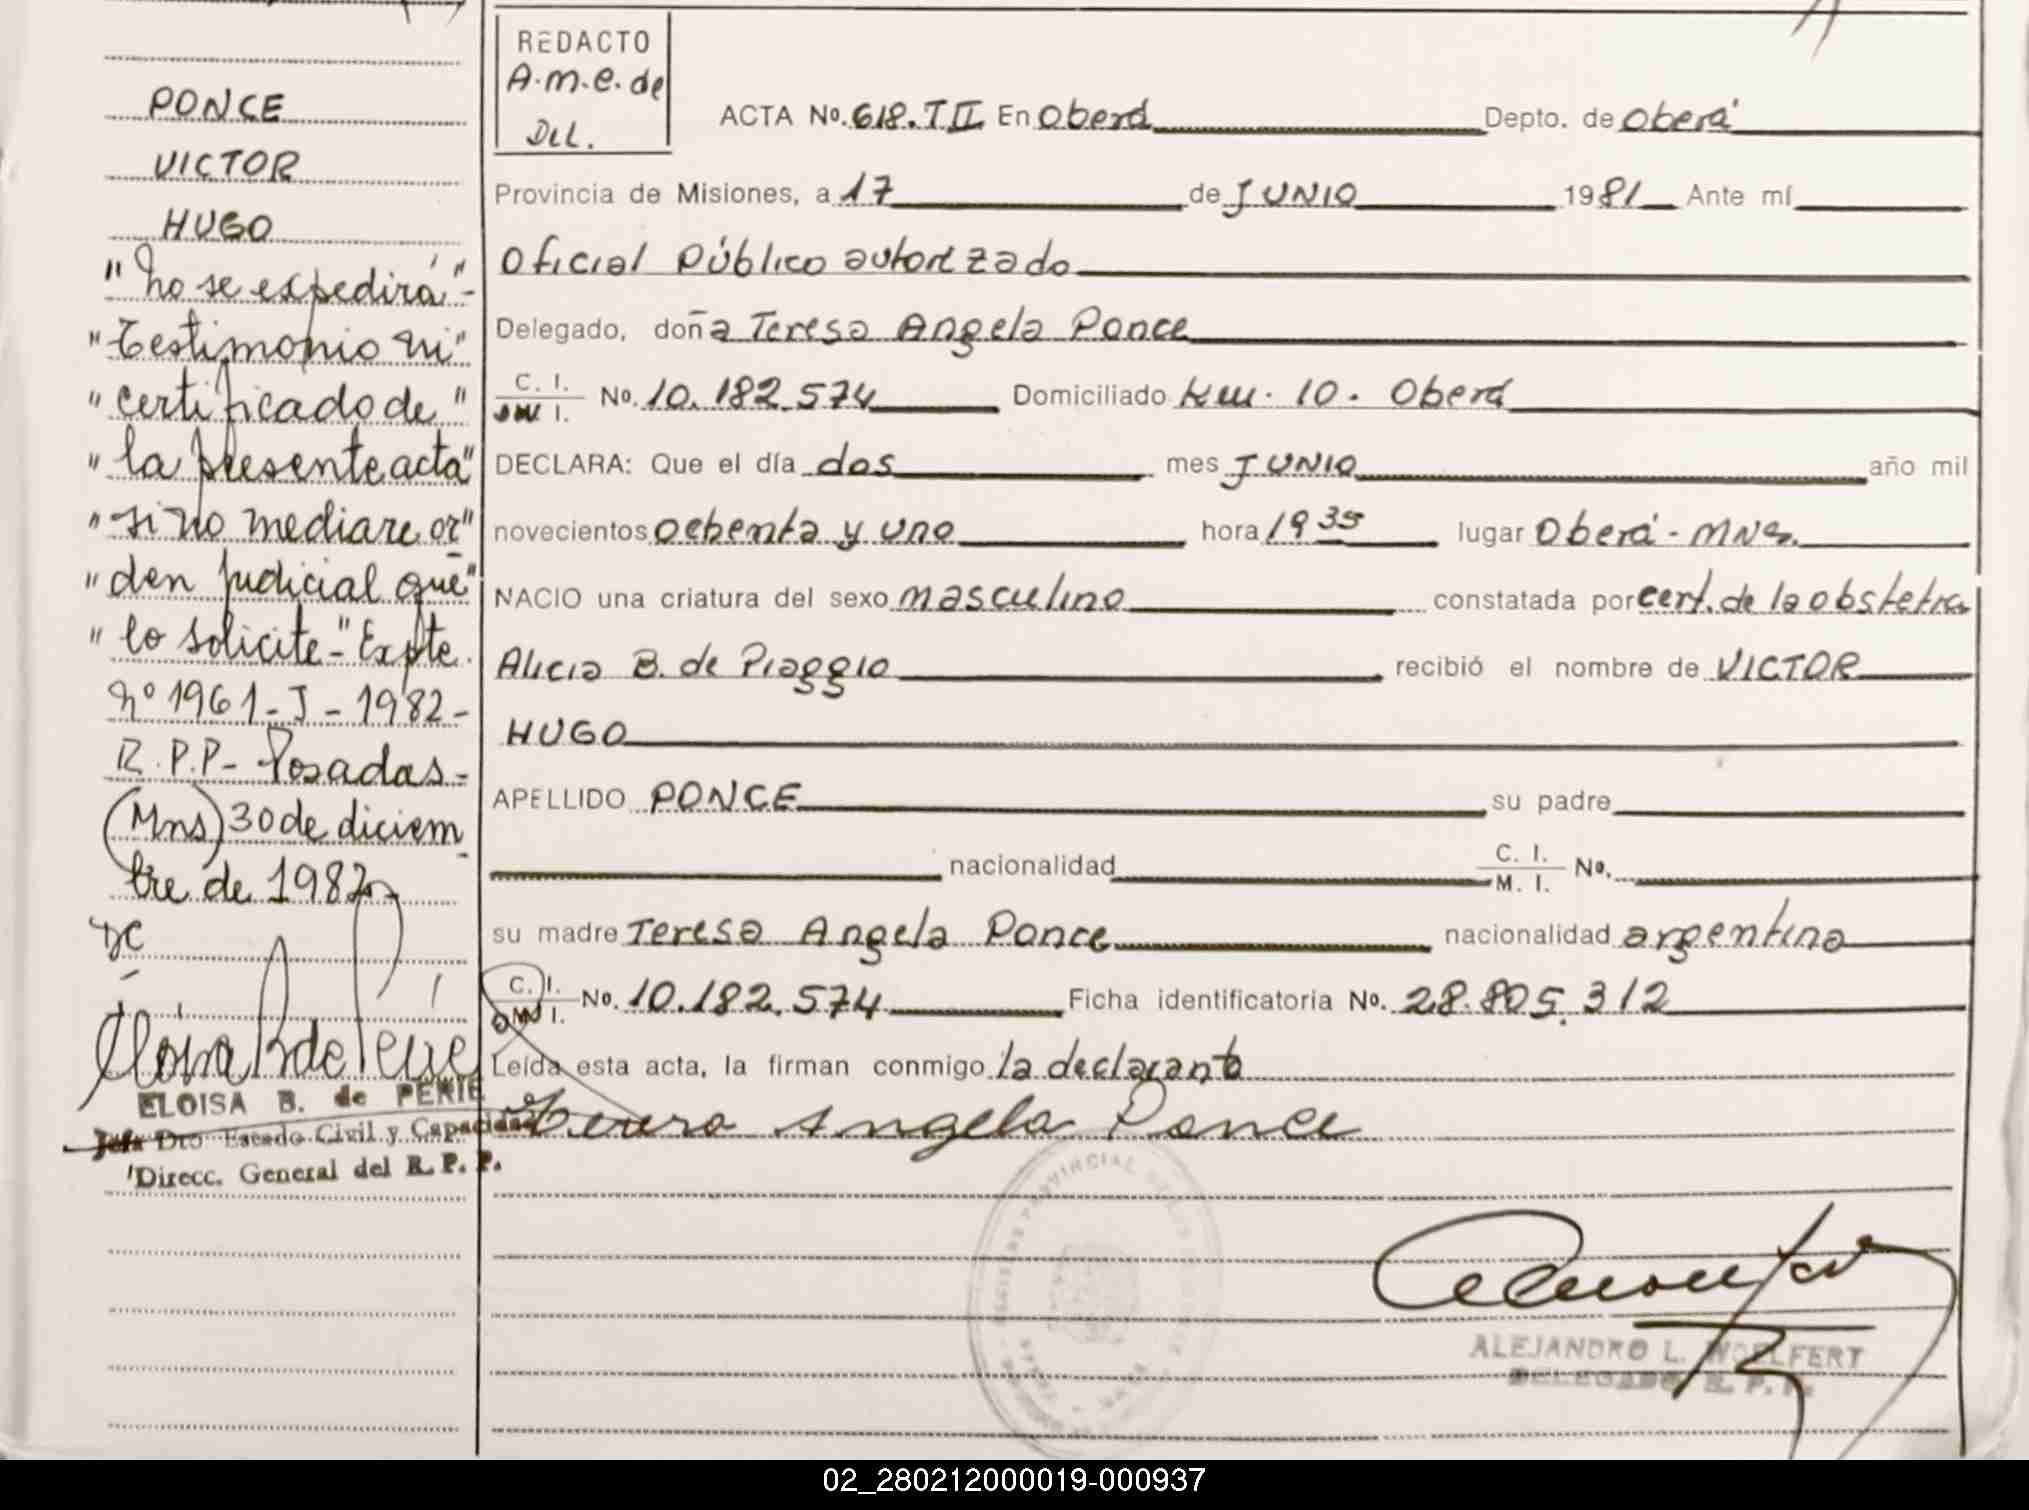 PONCE
VICTOR
HUGO
"no se expedirá"-
"testimonio ni"
"certificado de"
"la presente acta"
"si no mediare or"
"den judicial que"
"lo solicite-" Expte.
nº 1961-J-1982-
R.P.P- Posadas-
(Mns) 30 de diciem
bre de 1982
ELOISA B. de PERIE
Jefa Dto Estado Civil y Capacidad
Direcc. General del R. P. P.
REDACTO
A.m.e. de
DLL.
ACTA No. 618.T II En Oberá Depto. de Oberá
Provincia de Misiones, a 17 de JUNIO 1981 Ante mí
Oficial Público autorizado
Delegado, doña Teresa Angela Ponce
C. I. I. No. 10.182.574 Domiciliado Km. 10. Oberá
DECLARA: Que el día dos mes JUNIO año mil
novecientos ochenta y uno hora 19 35 lugar Oberá - MNS.
NACIO una criatura del sexo masculino constatada por cert. de la obstetra
Alicia B. de Piaggio recibió el nombre de VICTOR
HUGO
APELLIDO PONCE su padre
nacionalidad C. I. M. I. No.
su madre Teresa Angela Ponce nacionalidad argentina
C. I. M. I. No. 10.182.574 Ficha identificatoria No. 28.805.312
Leída esta acta, la firman conmigo la declarante
Teresa Angela Ponce
ALEJANDRO L. WOELFERT
DELEGADO R. P. P.
02_280212000019-000937